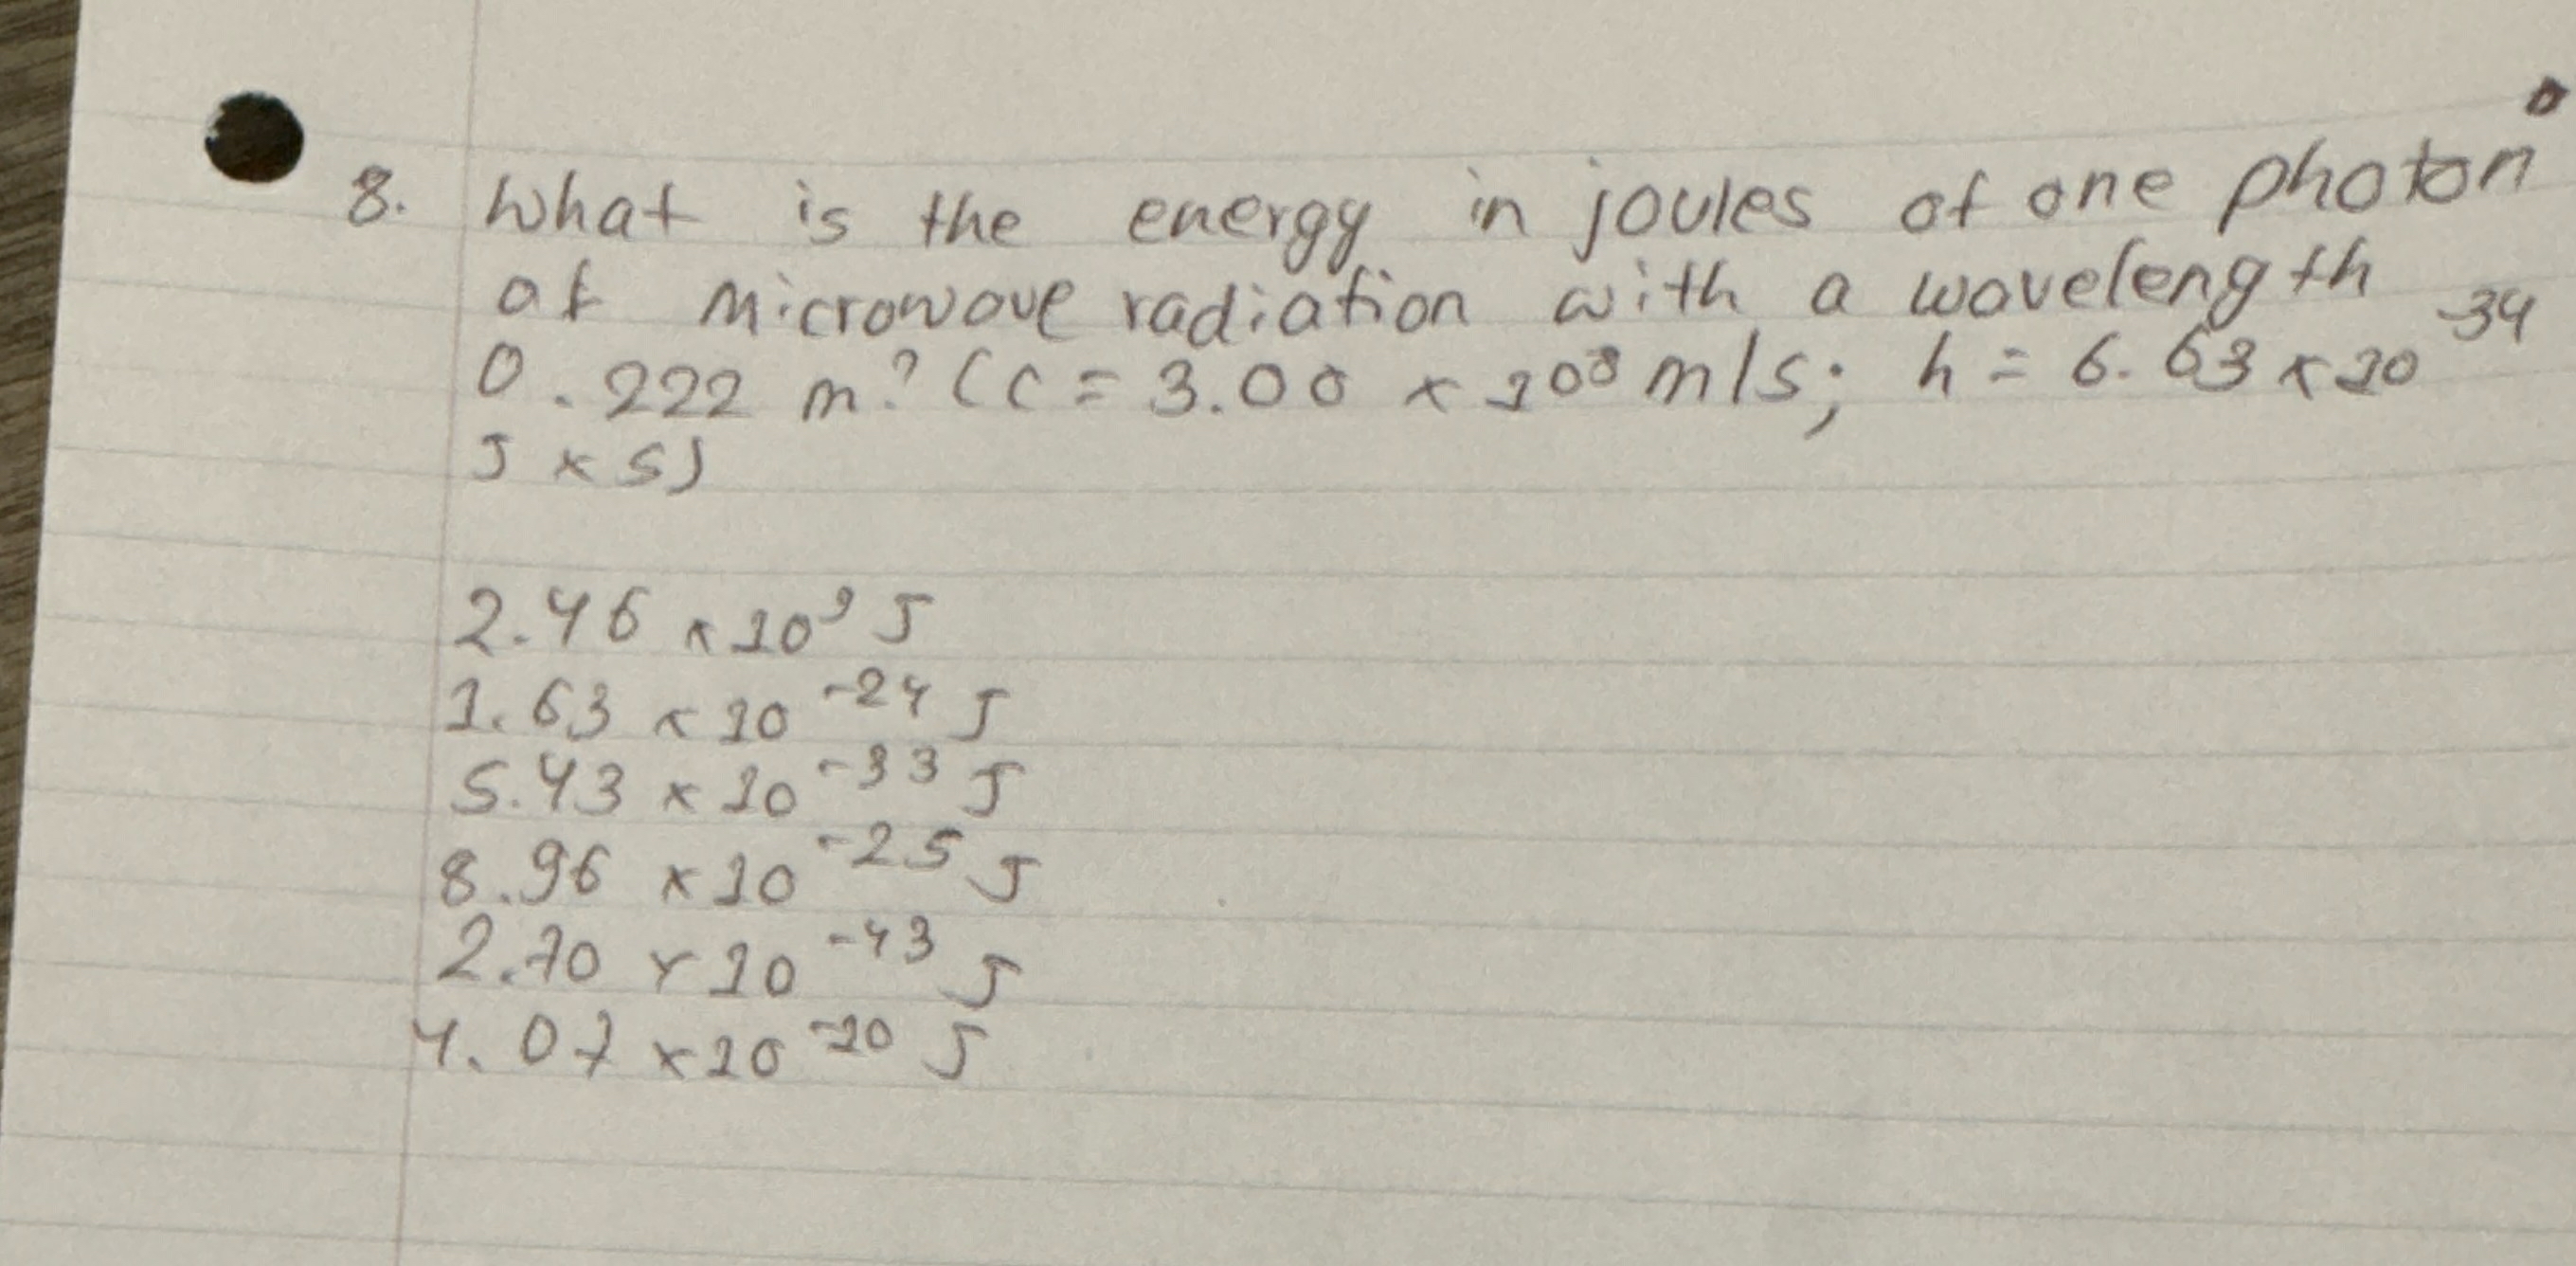 8. What is the energy in joules of one photon
of microwave radiation with a wavelength
0.222 m? (c = 3.00 × 10⁸ m/s; h = 6.63 × 10⁻³⁴
J × s)
2.46 × 10⁹ J
1.63 × 10⁻²⁴ J
5.43 × 10⁻³³ J
8.96 × 10⁻²⁵ J
2.70 × 10⁻⁴³ J
4.07 × 10⁻¹⁰ J